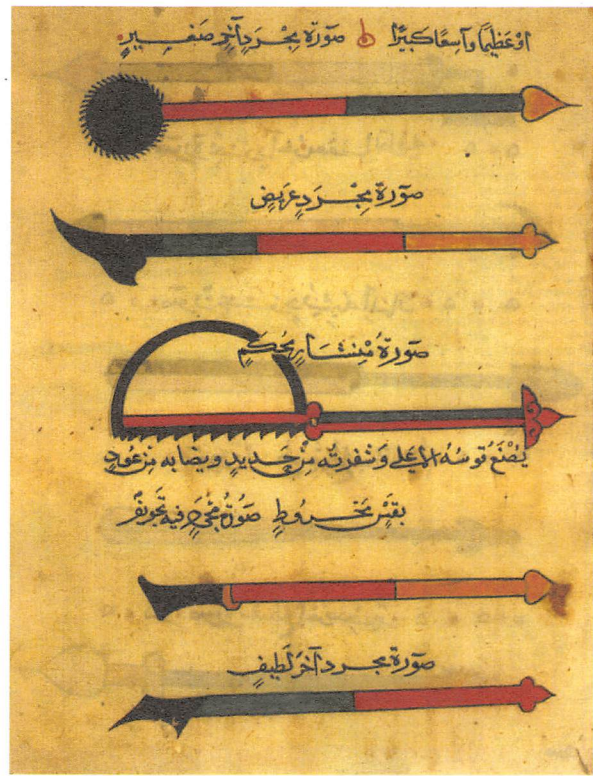 اوْ عَظِيمًا وَاسِعًا كَبِيرًا صُورَة مِجْرَدٍ آخَر صَغِيرٍ
صُورَة مِجْرَدٍ عَرِيضٍ
صُورَة مِنشَارٍ مُحكَمٍ
يُصْنَعُ قوسُهُ الاعلى وَشفرتُه مِنْ حَدِيدٍ ونصَابه مِنْ عُودٍ
بَقسٍ مَخرُوطٍ صُورَة مِجرَدٍ فيهِ تَجْوِيفٌ
صُورَة مجرد آخَر لَطِيفٍ